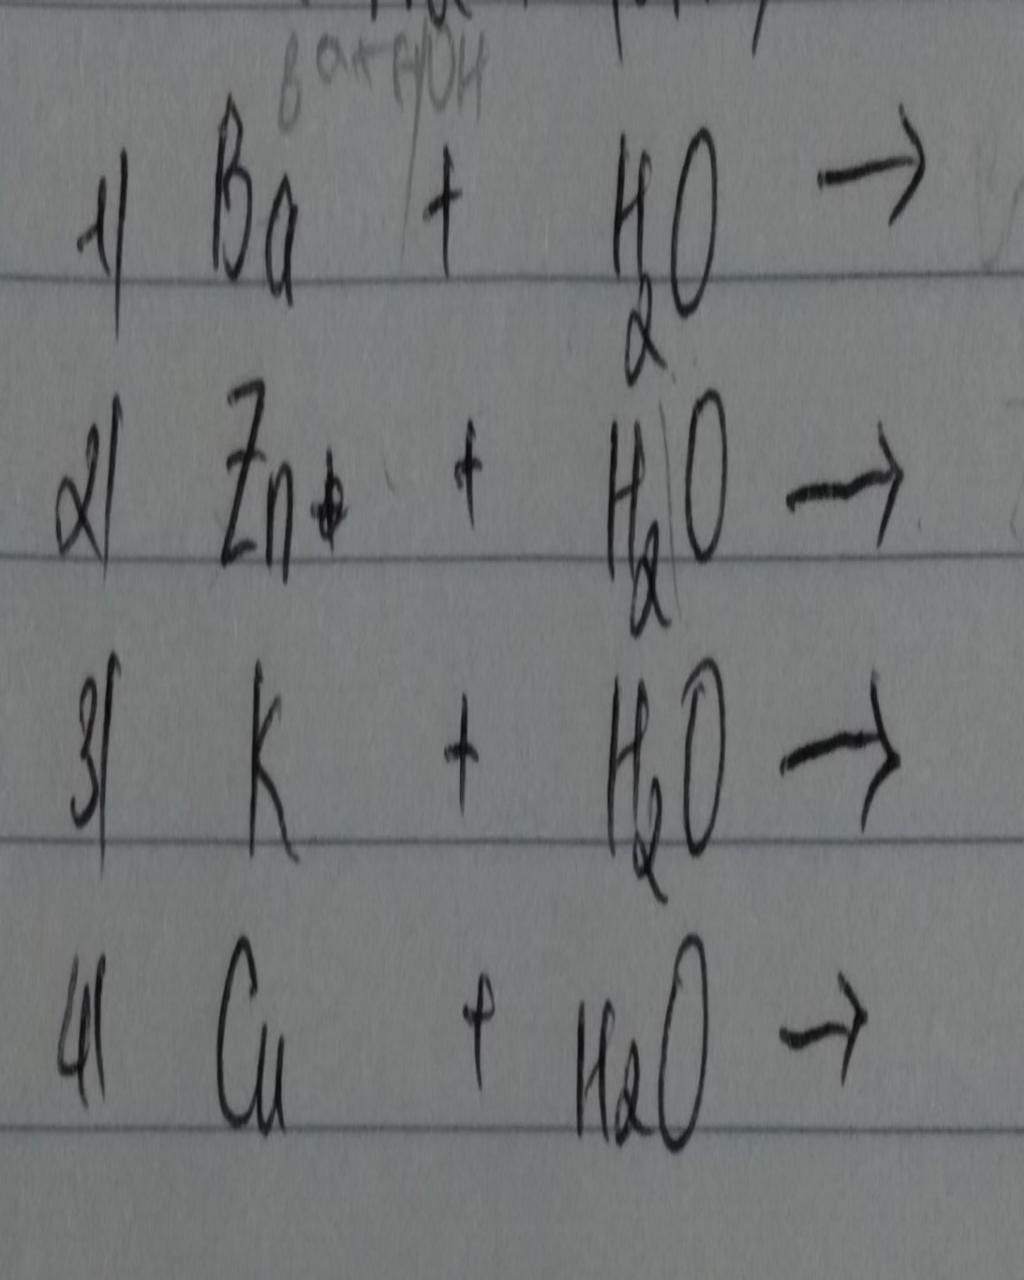 Ba + HOH
1) Ba + H2O →
2) Zn + H2O →
3) K + H2O →
4) Cu + H2O →